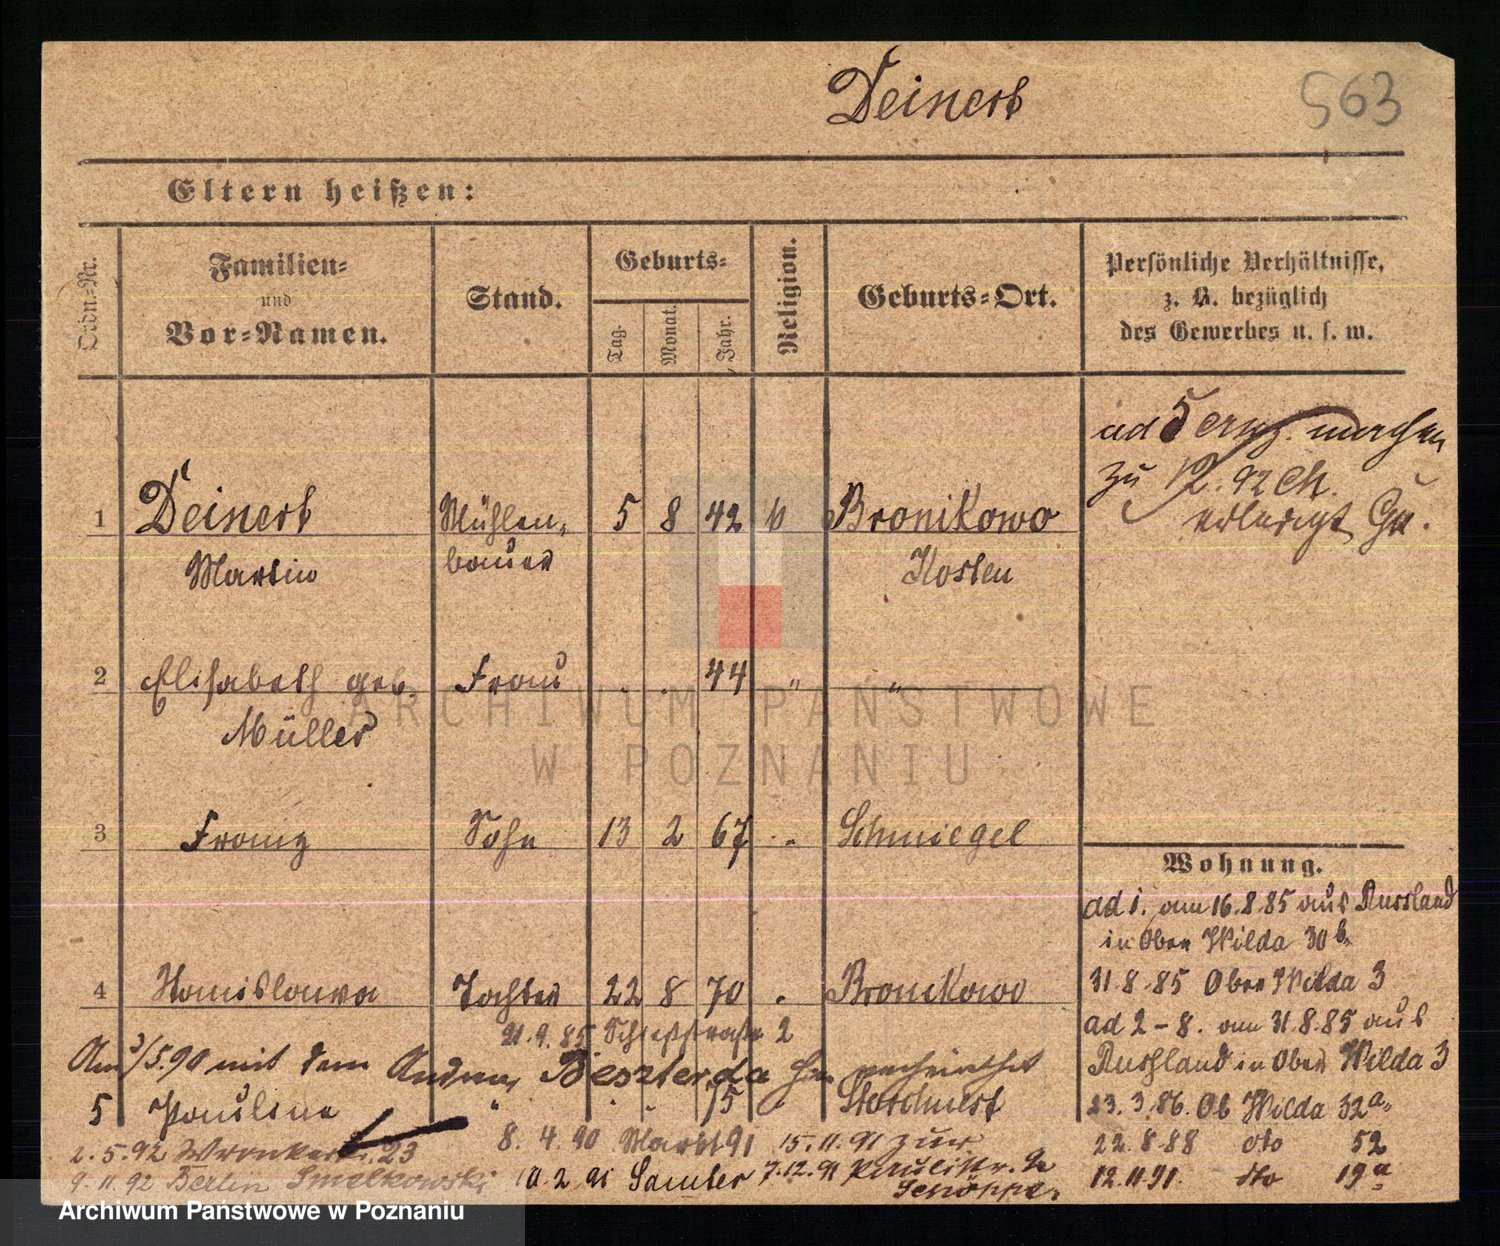 Deinert
563
Eltern heißen:
Ordn.-Nr.
Familien-
und
Vor-Namen.
Stand.
Geburts-
Tag.
Monat.
Jahr.
Religion.
Geburts-Ort.
Persönliche Verhältnisse,
z. B. bezüglich
des Gewerbes u. s. w.
ad 5 machen
zu 12.92
erledigt
1 Deinert Mühlen- 5 8 42 k Bronikowo
Martin bauer Kosten
2 Elisabeth geb. Frau . . 44 " "
Müller
3 Franz Sohn 13 2 67 " Schmiegel
4 Stanislawa Tochter 22 8 70 " Bronikowo
21.9.85 Schießstraße 2
Am 3/5.90 mit dem Andreas Bieszterda verheirathet
5 Pauline " . . 75
2.5.92 23
9.11.92 Berlin Smelkowski
8.4.90 Markt 91
10.2.91 Samter
15.11.91 zur
7.12.91
Wohnung.
ad 1. am 16.8.85 aus Russland
in Ober Wilda 30b.
31.8.85 Ober Wilda 3
ad 2-8. am 31.8.85 aus
Russland in Ober Wilda 3
23.3.86. Ob Wilda 32a.
22.8.88 dto 52
12.11.91. dto 19a
ARCHIWUM PAŃSTWOWE
W POZNANIU
Archiwum Państwowe w Poznaniu